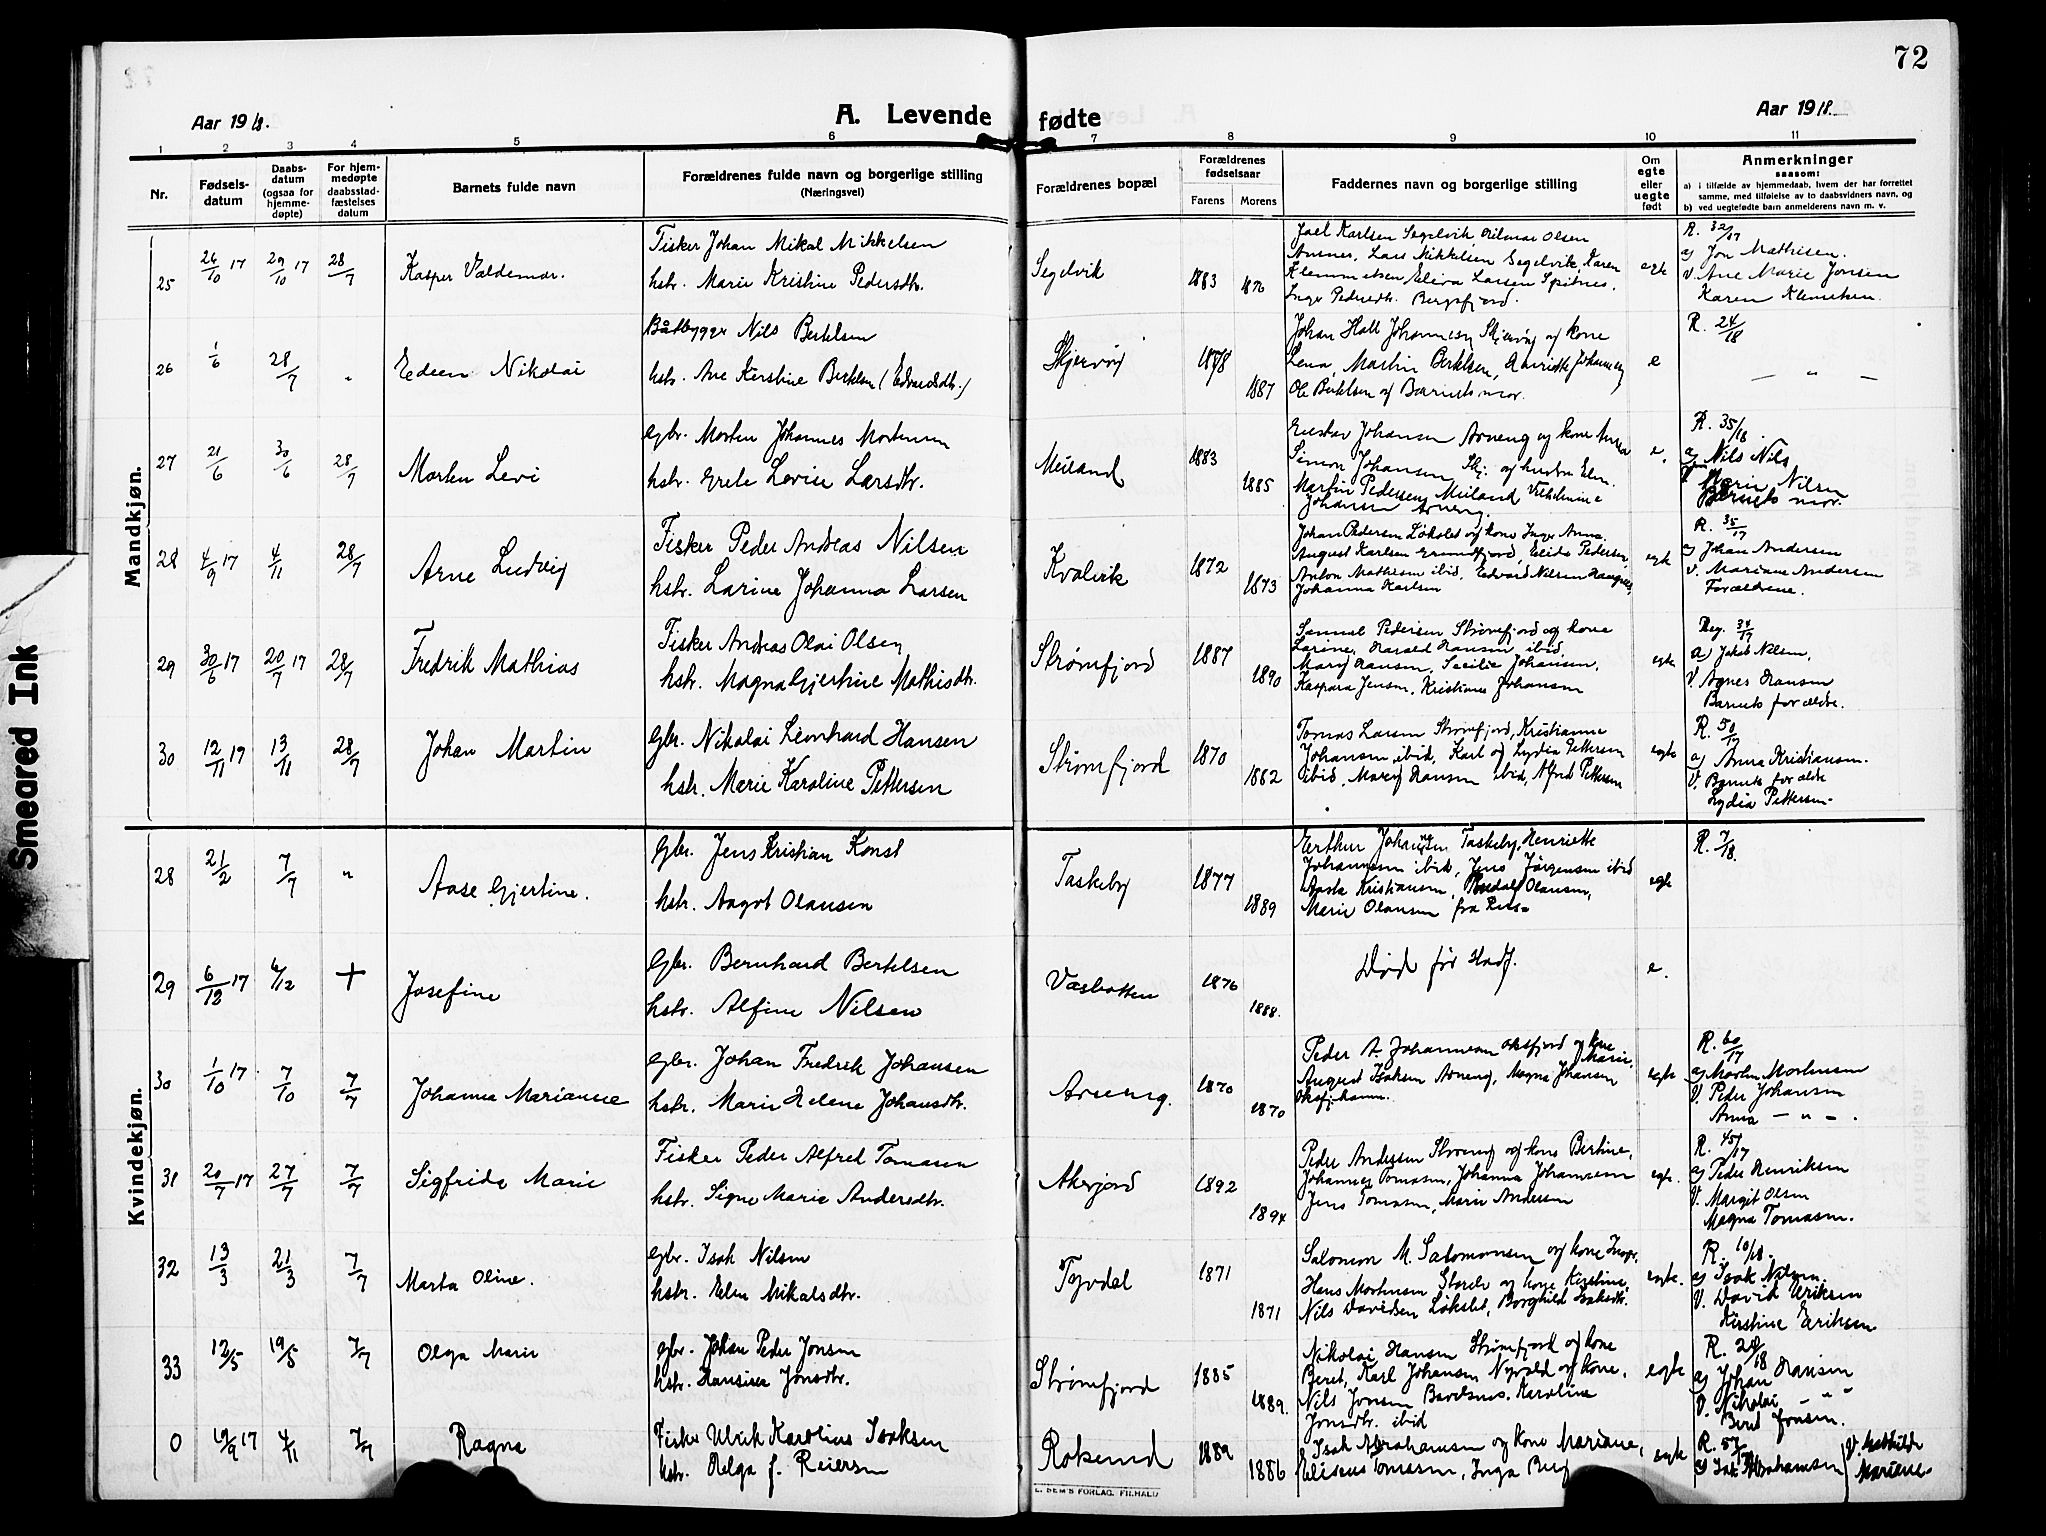 72
Aar 1918.
A. Levende fødte
Aar 1918.
1 2 3 4 5 6 7 8 9 10 11
Nr.
Fødsels-
datum
Daabs-
datum
(ogsaa for
hjemme-
døpte)
For hjem-
medøpte
daabsstad-
fæstelses
datum
Barnets fulde navn
Forældrenes fulde navn og borgerlige stilling
(Næringsvei)
Forældrenes bopæl
Forældrenes
fødselsaar
Farens Morens
Faddernes navn og borgerlige stilling
Om
egte
eller
uegte
født
Anmerkninger
saasom:
a) i tilfælde av hjemmedaab, hvem der har forrettet
samme, med tilføielse av to daabsvidners navn, og
b) ved uegtefødte barn anmelderens navn m. v.
Mandkjøn.
25 26/10 17 29/10 17 28/7 Kasper Valdemar.
Fisker Johan Mikal Mikkelsen
hstr. Marie Kristine Pedersdtr.
Segelvik 1883
Joel Karlsen Segelvik Hilmar Olsen
Lars Mikkelsen Segelvik, Karen
Klemmetsen Larsen Spitnes,
Inger Pedersdtr. Bergsfjord.
egte
R. 32/17
a) Jon Mathisen.
v. Ane Marie Jonsen
Karen Klemetsen.
26 1/6 28/7 " Edeen Nikolai
Båtbygger Nils Bertelsen
hstr. Ane Kerstine Bertelsen (Edvardsdtr.)
Skjervøy 1878 1887
Johan Hall Johannesen Skjervøy og kone
Lena, Martin Bertelsen, Henriette Johannesen
Ole Bertelsen og Barnets mor.
e
R. 24/18
— " —
27 21/6 30/6 28/7 Morten Levi
Gbr. Morten Johannes Mortensen
hstr. Grete Lovise Larsdtr.
Meiland 1883 1885
Johansen Arneng og kone
Simon Johansen Skj. og hustru Elen.
Martin Pedersen Meiland Vilhelmine
Johansen Arneng.
e.
R. 35/18.
a) Nils Nils
Marie Nilsen
Barnets mor.
28 4/9 17 4/11 28/7 Arne Ludvig
Fisker Peder Andreas Nilsen
hstr. Larine Johanna Larsen
Kvalvik 1872 1873
Johan Pedersen Løkslet og kone Inger Anna.
August Karlsen Grundfjord, Pedersen,
Anton Mathisen ibid, Edvard Nilsen
Johanna Karlsen
egte
R. 35/17
a) Johan Andersen
v. Mariane Andersen
Forældrene.
29 30/6 17 20/7 17 28/7 Fredrik Mathias
Fisker Andreas Olai Olsen
hstr. Magna Gjertine Mathisdtr.
Strømfjord 1887 1890
Samuel Pedersen Strømfjord og kone
Larine, Harald Hansen ibid,
Mary Hansen, Secilie Johansen,
Kaspara Jensen, Kristiane Johansen
egte
Reg. 34/17
a) Jakob Nilsen,
V. Agnes Hansen
Barnets forældre.
30 12/11 17 13/11 28/7 Johan Martin
Gbr. Nikolai Leonhard Hansen
hstr. Marie Karoline Pettersen
Strømfjord 1870 1882
Tomas Larsen Strømfjord, Kristianne
Johansen ibid, Karl og Lydia Pettersen
ibid, Mary Hansen ibid, Alfred Pettersen
egte
R. 50/17
a) Anna Kristiansen.
V. Barnets forældre
Lydia Pettersen.
Kvindekjøn.
28 21/2 7/7 " Aase Gjertine.
Gbr. Jens Kristian Konst
hstr. Aagot Olausen
Taskeby 1877 1889
Erthur Johansen Taskeby, Henriette
Johannesen ibid, Jens Jørgensen ibid
Kristiansen, Olausen,
Marie Olausen fra
egte
R. 7/18.
29 6/12 17 6/12 + Josefine
Gbr. Bernhard Bertelsen
hstr. Alfine Nilsen
Vasbotten 1876 1888.
Død før stadf.
e.
30 1/10 17 7/10 7/7 Johanne Marianne
Gbr. Johan Fredrik Johansen
hstr. Marie Helene Johansdtr.
Arneng. 1870 1870
Peder A. Johannesen Oksfjord og kone Marie,
August Isaksen Arneng, Magna Johansen
Oksfjordhamn.
egte
R. 60/17
a) Morten Mortensen
V. Peder Johansen
Anna — " — .
31 20/7 17 27/7 7/7 Sigfride Marie
Fisker Peder Alfred Tomasen
hstr. Signe Marie Andersdtr.
Akerjord 1892 1894
Peder Andersen og kone Bertine,
Johannes Tomasen, Johanna Johannesen
Jens Tomasen, Marie Andersen
egte.
R. 45/17
a) Peder Henriksen
V. Margit Olsen
Magna Tomasen.
32 13/3 21/3 7/7 Marta Oline.
Gbr. Isak Nilsen
hstr. Elen Mikalsdtr.
Tyvdal 1871 1871
Salomon M. Salomonsen og kone Inger,
Hans Mortensen Storslet og kone Kirstine,
Nils Davidsen Løkslet, Borghild Isaksdtr.
egte.
R. 10/18.
a) Isak Nilsen.
V. David Eriksen
Kirstine Eriksen
33 12/5 19/5 7/7 Olga Marie
gbr. Johan Peder Jonsen
hstr. Hansine Jonsdtr.
Strømfjord 1885 1889.
Nikolai Hansen Strømfjord og kone
Beret, Karl Johansen Nyvold og kone,
Nils Jonsen Bardsnes, Karoline
Jonsdtr. ibid
egte
R. 28/18
a) Johan Hansen
V. Nikolai — " —
Beret Jonsen.
0 19/9 17 4/11 7/7 Ragna
Fisker Ulrik Karolius Isaksen
hstr. Helga f. Reiersen
Rotsund 1889 1886
Isak Abrahamsen og kone Mariane,
Eliseus Tomasen, Inga Berg
egte
R. 57/17
a) Isak Abrahamsen
V. Mathilde
Mariane.
E. SEM'S FORLAG. FR.HALD
Smeared Ink